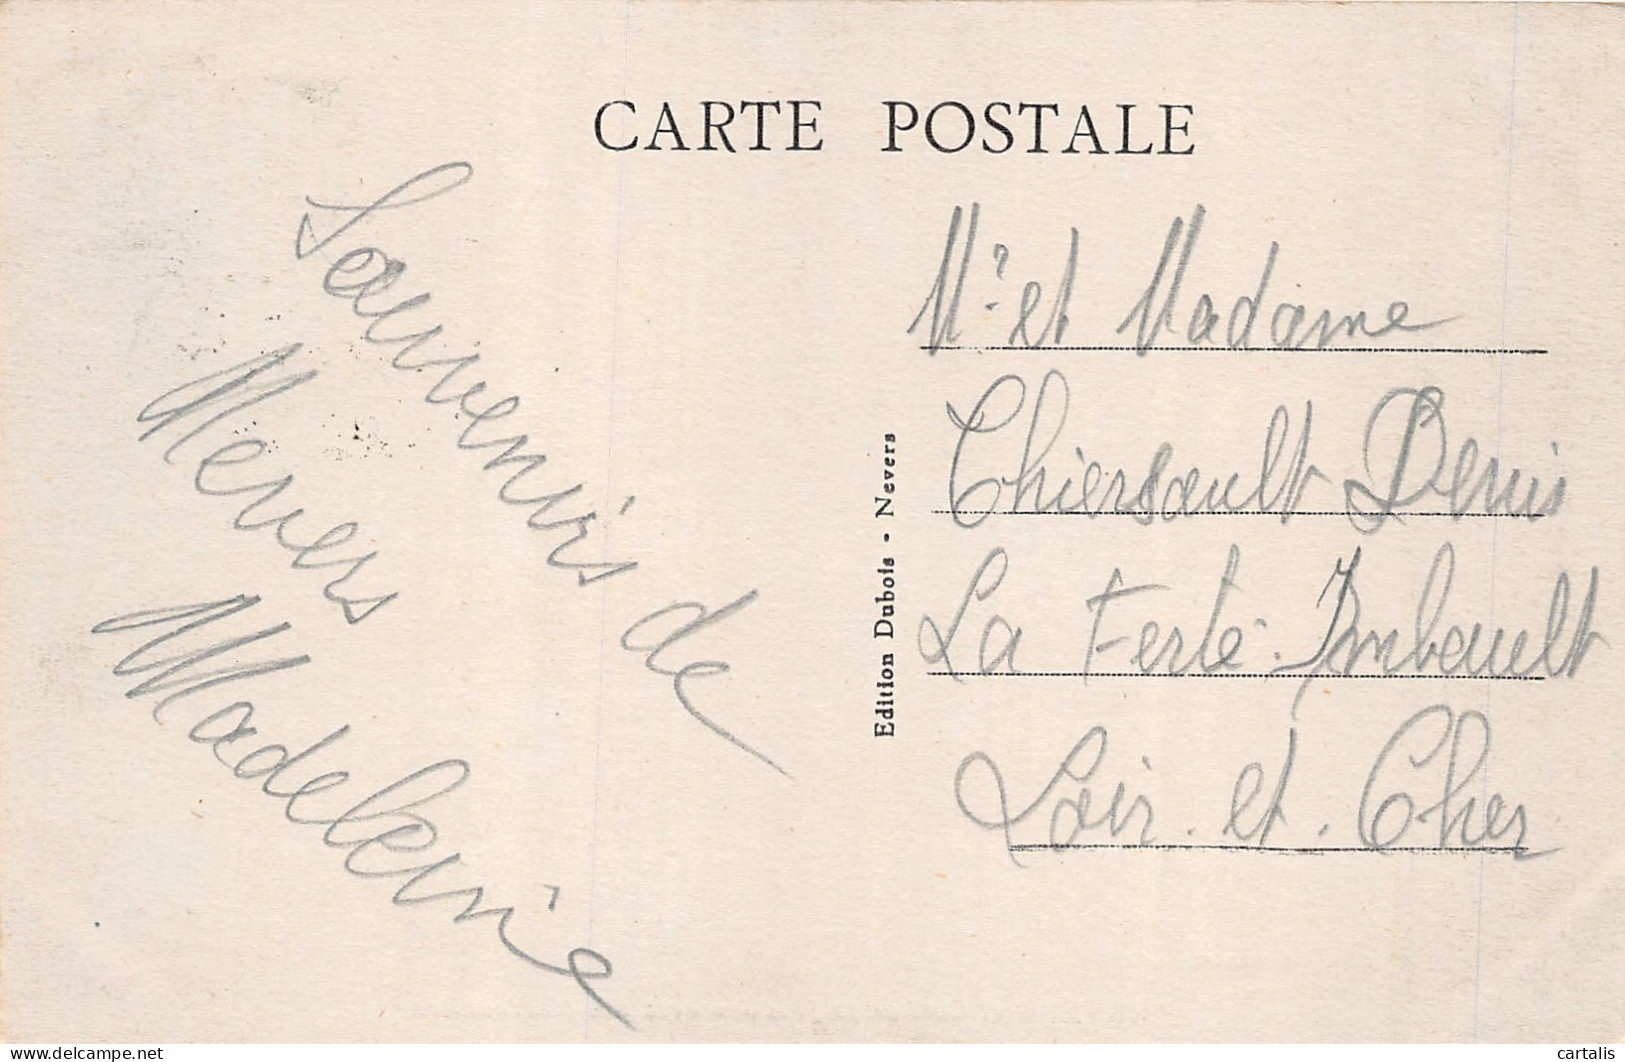 CARTE POSTALE
Souvenirs de
Nevers
Madeleine
Edition Dubois - Nevers
Mr et Madame
Thiersault Denis
La Ferté-Imbault
Loir. et. Cher
www.delcampe.net
cartalis